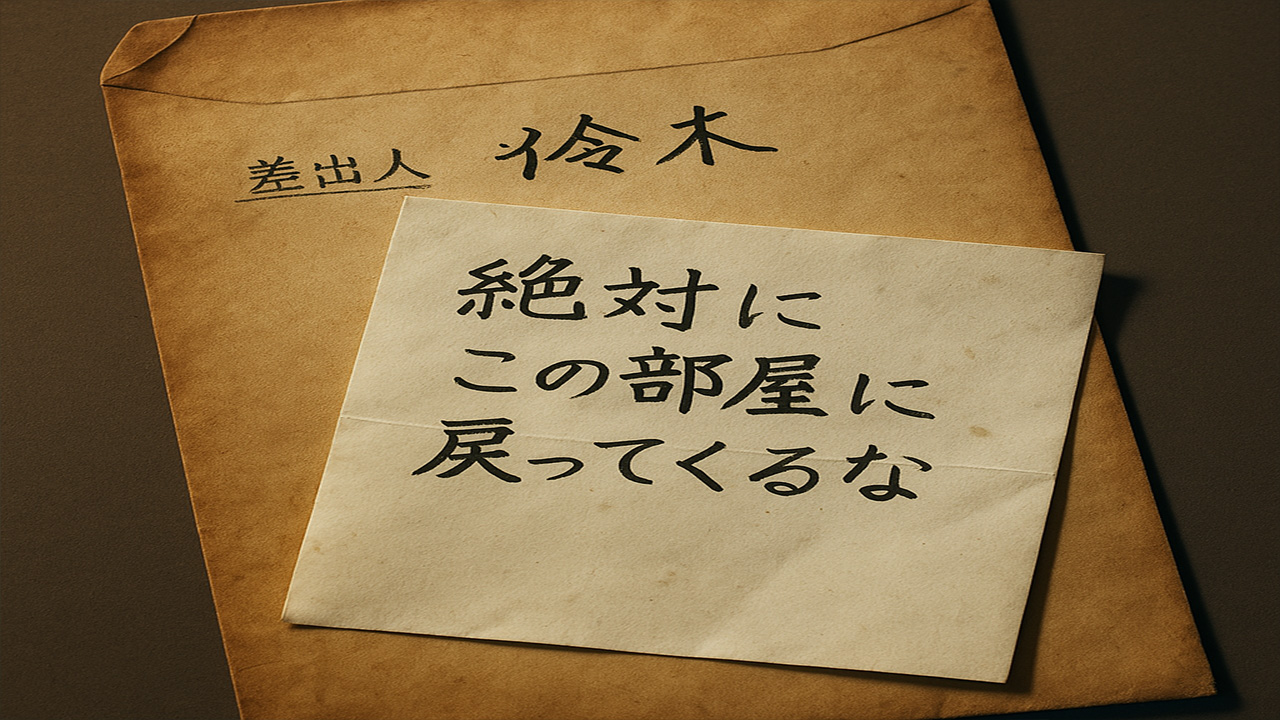 差出人 木
絶対に
この部屋に
戻ってくるな